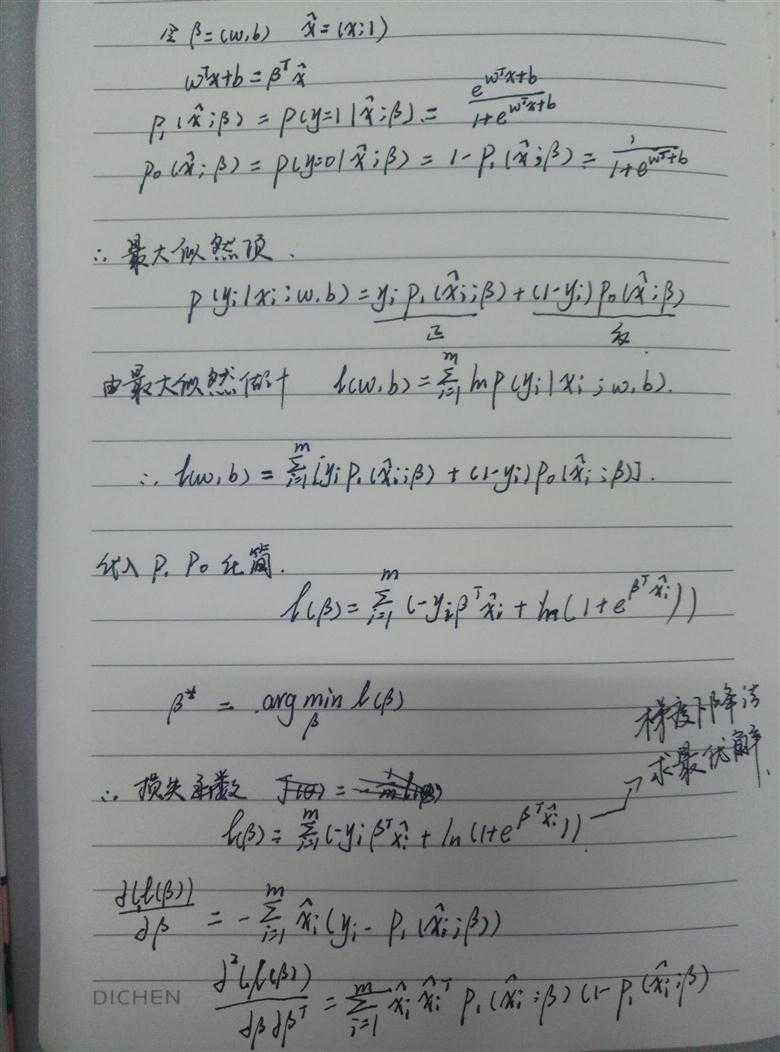 令 β=(w,b) x̂=(x;1)
wᵀx+b=βᵀx̂
p₁(x̂;β) = p(y=1|x̂;β) = e^(wᵀx+b) / (1+e^(wᵀx+b))
p₀(x̂;β) = p(y=0|x̂;β) = 1-p₁(x̂;β) = 1 / (1+e^(wᵀ+b))
∴ 最大似然项.
p(yᵢ|xᵢ;w,b) = yᵢ p₁(x̂ᵢ;β) + (1-yᵢ) p₀(x̂;β)
正 负.
由最大似然估计 l(w,b) = Σᵢ₌₁ᵐ ln p(yᵢ|xᵢ;w,b).
∴ l(w,b) = Σᵢ₌₁ᵐ [yᵢ p₁(x̂ᵢ;β) + (1-yᵢ) p₀(x̂ᵢ;β)].
代入 p₁ p₀ 化简.
l(β) = Σᵢ₌₁ᵐ (-yᵢβᵀx̂ᵢ + ln(1+e^(βᵀx̂ᵢ)))
β* = arg min_β l(β)
梯度下降法
求最优解.
∴ 损失函数
l(β) = Σᵢ₌₁ᵐ (-yᵢβᵀx̂ᵢ + ln(1+e^(βᵀx̂ᵢ)))
∂(l(β))/∂β = -Σᵢ₌₁ᵐ x̂ᵢ(yᵢ - p₁(x̂ᵢ;β))
∂²(l(β))/∂β∂βᵀ = Σᵢ₌₁ᵐ x̂ᵢx̂ᵢᵀ p₁(x̂ᵢ;β)(1-p₁(x̂ᵢ;β)
DICHEN